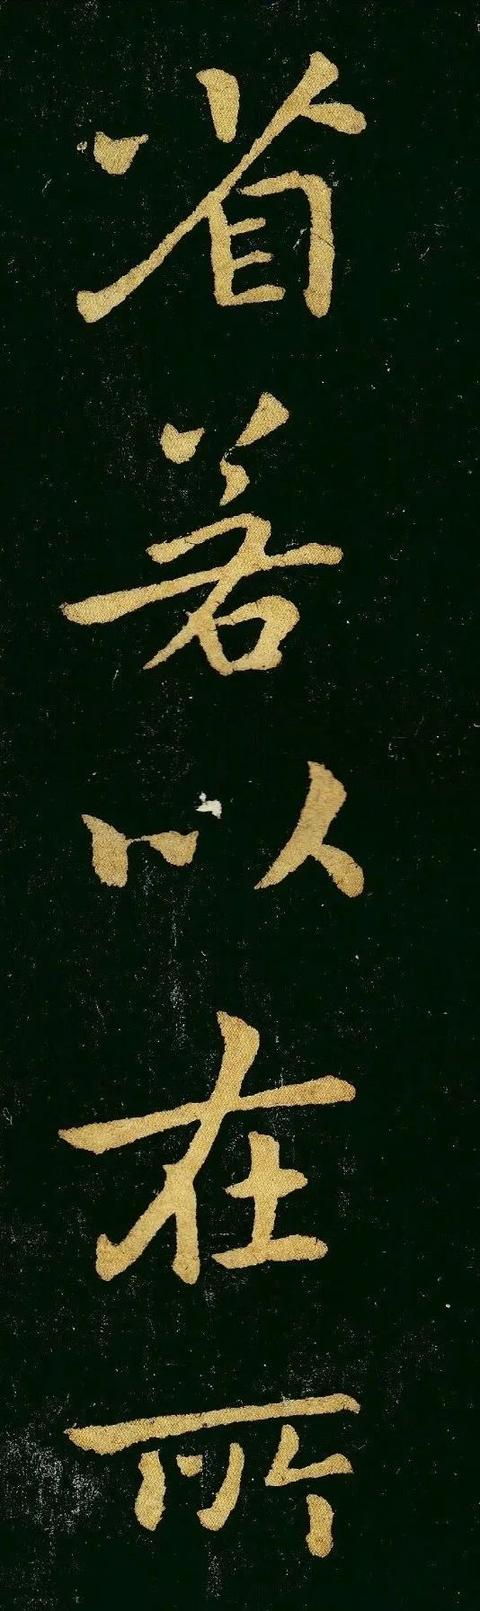 省若以在所